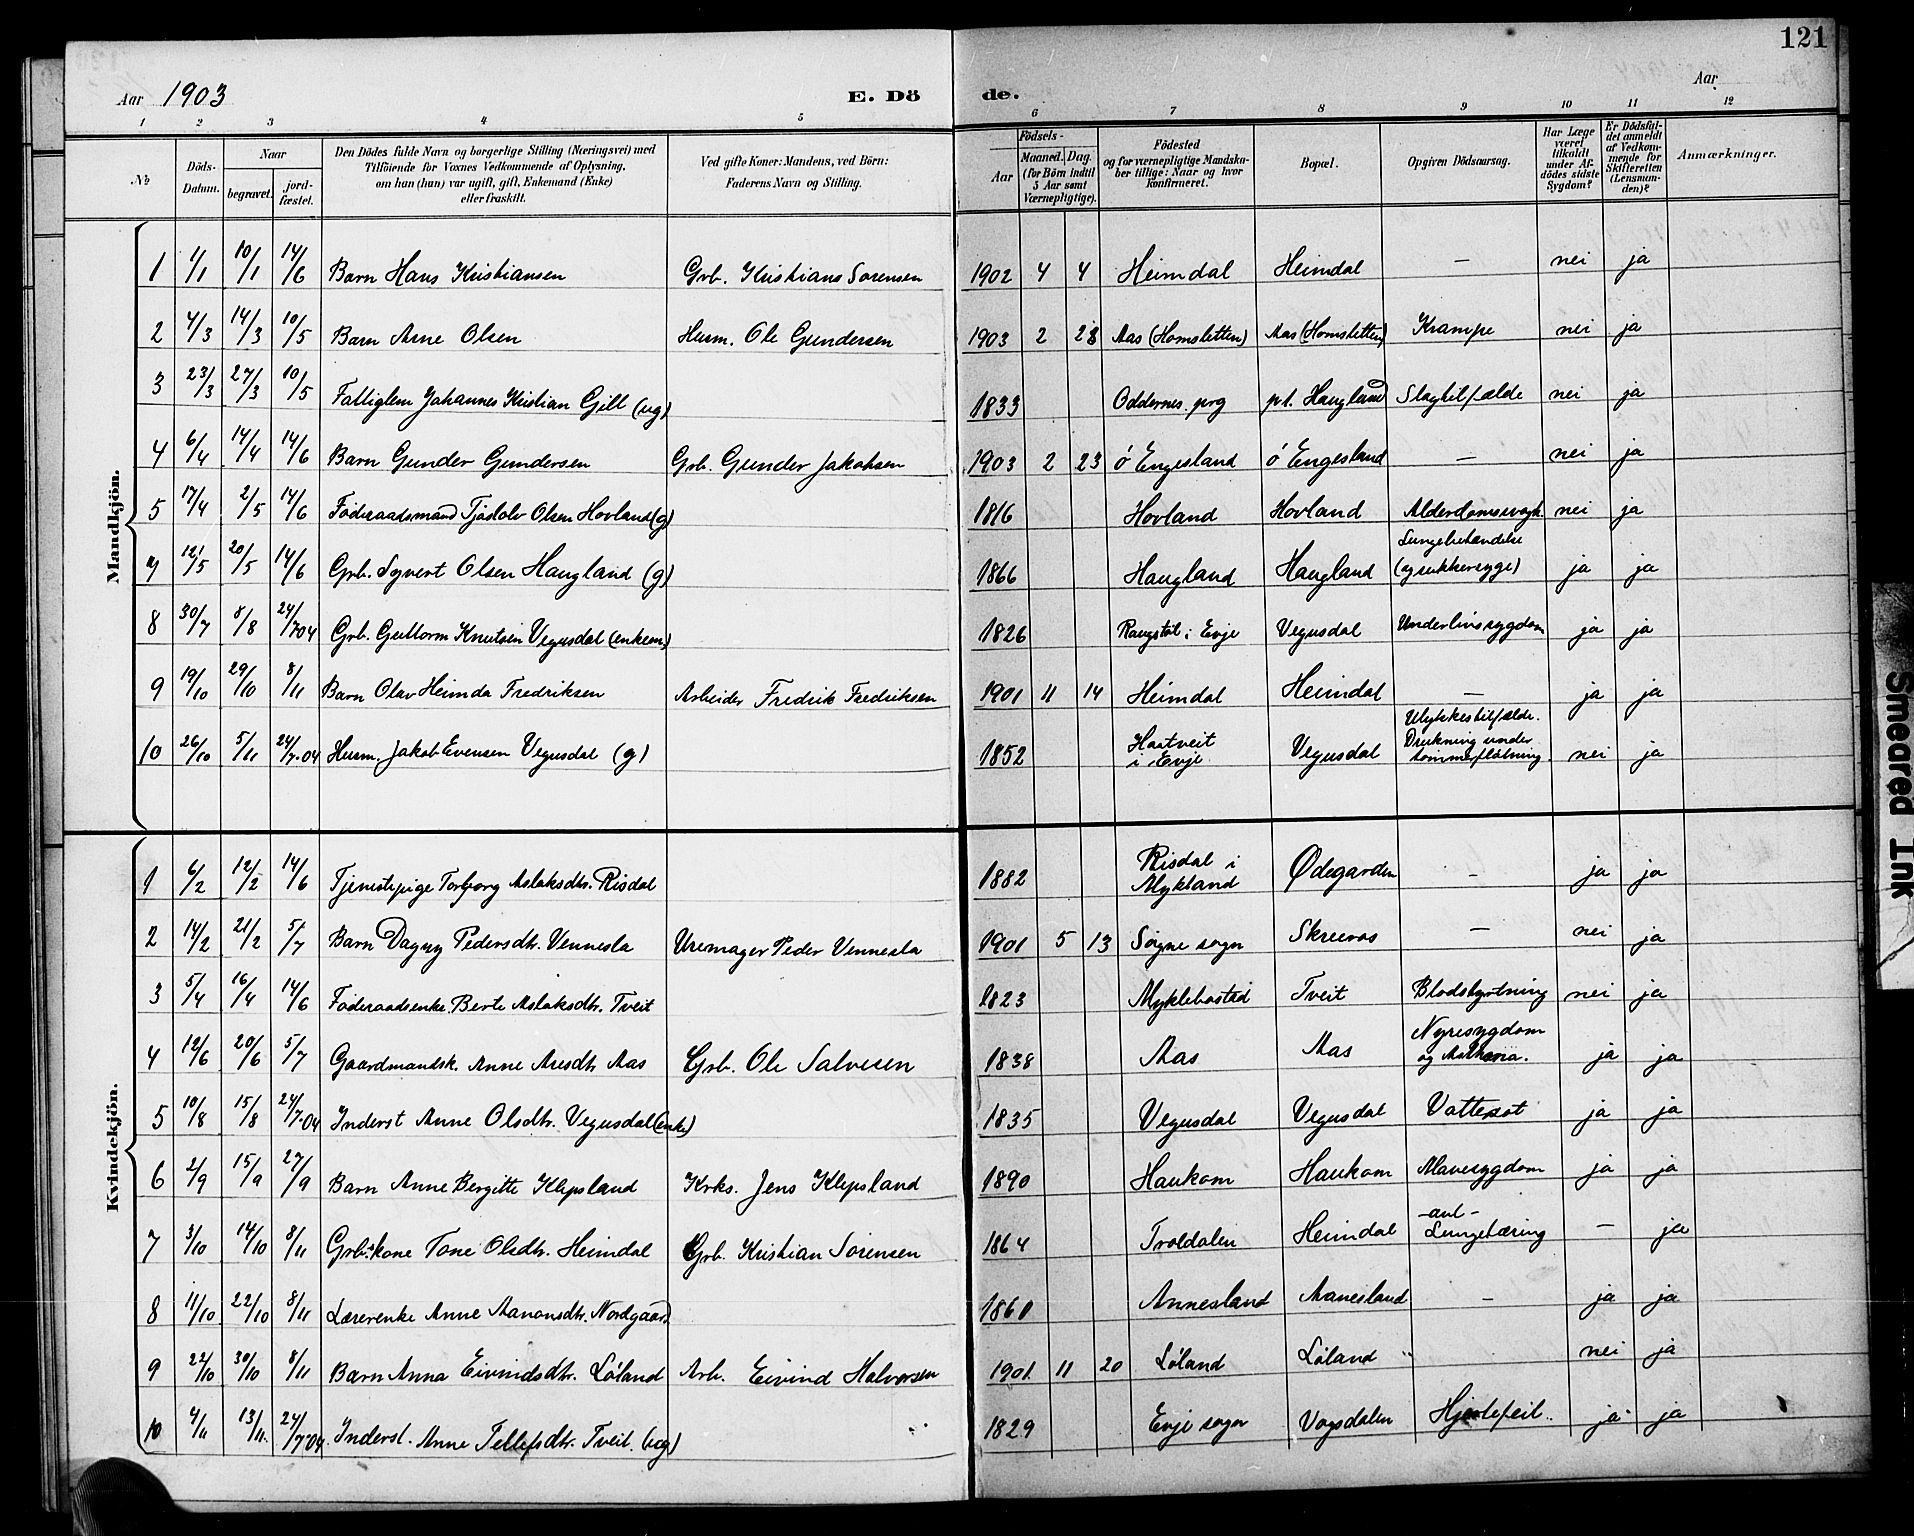 121
Aar 1903 E. Dö de. Aar
1 2 3 4 5 6 7 8 9 10 11 12
№ Döds-Datum. Naar begravet. jord-fæstet. Den Dödes fulde Navn og borgerlige Stilling (Næringsvei) med Tilföiende for Voxnes Vedkommende af Oplysning, om han (hun) var ugift, gift, Enkemand (Enke) eller fraskilt. Ved gifte Koner: Mandens, ved Börn: Faderens Navn og Stilling. Födsels- Aar Maaned. Dag. (for Börn indtil 5 Aar samt Værnepligtige). Födested og for værnepligtige Mandska-ber tillige: Naar og hvor konfirmeret. Bopæl. Opgiven Dödsaarsag. Har Læge været tilkaldt under Af-dödes sidste Sygdom? Er Dödsfal-det anmeldt af Vedkom-mende for Skifteretten (Lensman-den)? Anmærkninger.
Mandkjön.
1 1/1 10/1 14/6 Barn Hans Kristiansen Grb. Kristians Sørensen 1902 4 4 Heimdal Heimdal — nei ja
2 4/3 14/3 10/5 Barn Arne Olsen Husm. Ole Gundersen 1903 2 28 Aas (Homsletten) Aas (Homsletten) Krampe nei ja
3 23/3 27/3 10/5 Fattiglem Johannes Kristian Gill (ug) 1833 Oddernes prg pt. Haugland Slagtilfælde nei ja
4 6/4 14/4 14/6 Barn Gunder Gundersen Grb. Gunder Jakobsen 1903 2 23 ö Engesland ö Engesland — nei ja
5 17/4 2/5 14/6 Føderaadsmand Tjøstolv Olsen Hovland (g) 1816 Hovland Hovland Alderdomssvagh. nei ja
7 12/5 20/5 14/6 Grb. Syvert Olsen Haugland (g) 1866 Haugland Haugland Lungebetændelse (og sukkersyge) ja ja
8 30/7 8/8 24/7 04 Grb. Guttorm Knutsen Vegusdal (enkem) 1826 i Evje Vegusdal Underlivssygdom ja ja
9 19/10 29/10 8/11 Barn Olav Heimda Fredriksen Arbeider Fredrik Fredriksen 1901 11 14 Heimdal Heimdal — ja ja
10 26/10 5/11 24/7-04 Husm. Jakob Evensen Vegusdal (g) 1852 Haatveit i Evje Vegusdal Ulykkestilfælde. Drukning under tømmerfløtning. nei ja
Kvindekjön.
1 6/2 12/2 14/6 Tjenestepige Torbjørg Aslaksdtr. Risdal 1882 Risdal i Mykland Ødegarden — ja ja
2 14/2 21/2 5/7 Barn Dagny Pedersdtr. Vennesla Uremager Peder Vennesla 1901 5 13 Søgne sogn Skreeros — nei ja
3 5/4 16/4 14/6 Føderaadsenke Berte Aslaksdtr. Tveit 1823 Myklebostad Tveit Blodstyrtning nei ja
4 12/6 20/6 5/7 Gaardmandsk. Anne Aresdtr Aas Grb. Ole Salvesen 1838 Aas Aas Nyresygdom og Asthma. ja ja
5 10/8 15/8 24/7-04 Inderst Anne Olsdtr. Vegusdal (enke) 1835 Vegusdal Vegusdal Vattersot ja ja
6 2/9 15/9 27/9 Barn Anne Bergitte Klepsland Krks. Jens Klepsland 1890 Haukom Haukom Mavesygdom ja ja
7 3/10 14/10 8/11 Grb.kone Tone Olsdtr. Heimdal Grb. Kristian Sørensen 1864 Troldalen Heimdal -ant- Lungetæring — ja
8 11/10 22/10 8/11 Lærerenke Anne Aanonsdtr. Nordgaard 1860 Annesland Aanesland — ja ja
9 22/10 30/10 8/11 Barn Anna Eivindsdtr. Løland Arb. Eivind Halvorsen 1901 11 20 Løland Løland " nei ja
10 4/11 13/11. 24/7 04 Inderst. Anne Tellefsdtr. Tveit. (ug) 1829 Evje sogn Vogsdalen Hjertefeil. ja ja
Smeared Ink